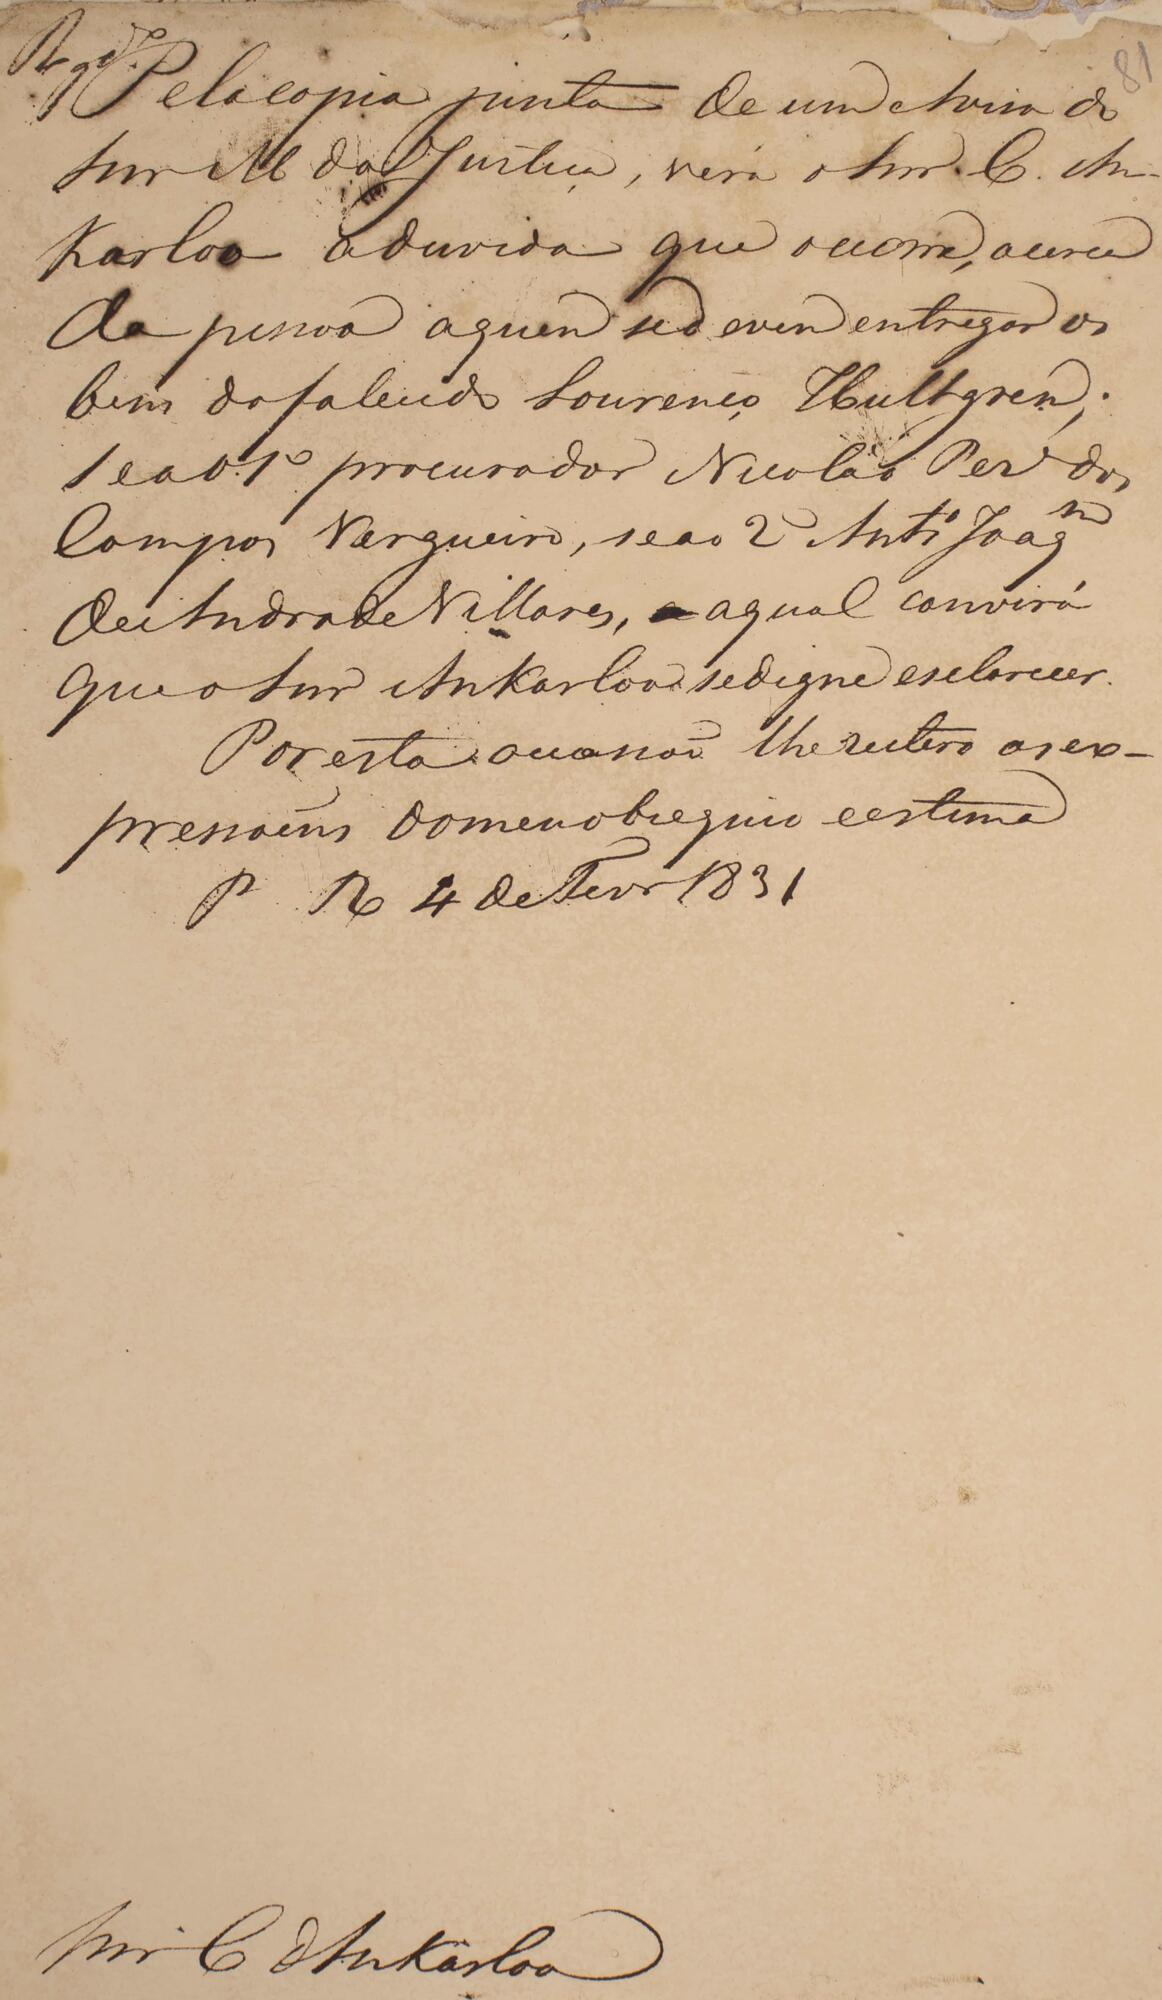 Rgda
81
Pela copia junta de um Aviso do
Snr M da Justiça, verá o Snr. C. An-
Karloo a duvida que occorre, acerca
da pessoa a quem se devem entregar os
bens do falecido Lourenço Hultgren;
se ao 1º procurador Nicoláo Perª dos
Campos Vergueiro, se ao 2º Antº Joaqm
de Andrade Villares, a qual convirá
que o Snr AnKarloo se digne esclarecer.
Por esta occasião lhe reitero as ex-
pressoens do meu obsequio e estima
P R 4 de Fevr 1831
Snr C d'AnKarloo